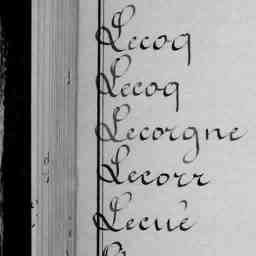 Lecoq
Lecoq
Lecorgne
Lecorr
Lecuè